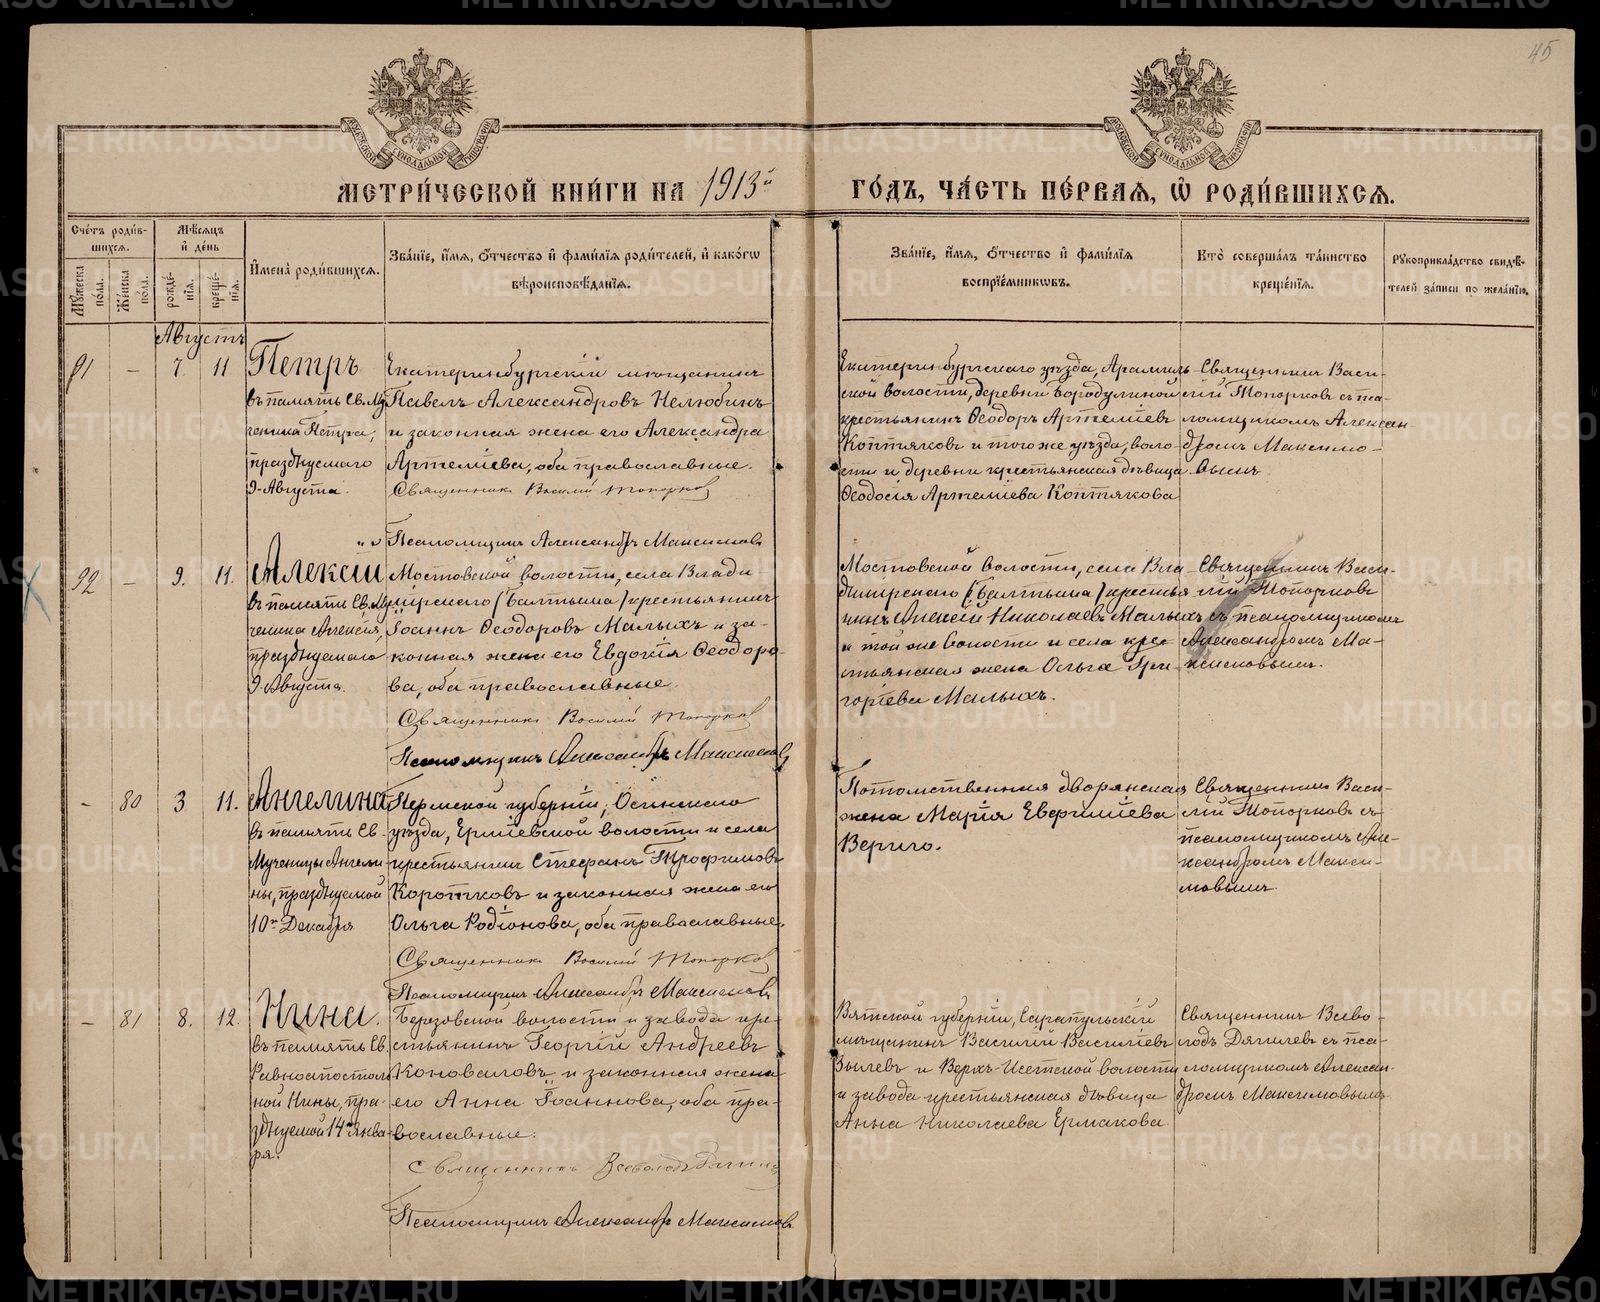 45
МЕТРИ́ЧЕСКОЙ КНИ́ГИ НА 1913й ГО́ДЪ, ЧА́СТЬ ПЕ́РВАЯ, Ѡ҆ РОДИ́ВШИХСѦ.
Сче́тъ роди́в-
шихсѧ.
Мꙋ́жеска по́ла.
Же́нска по́ла.
Мѣ́сѧцъ
и҆ де́нь
рожде́-
нїѧ.
креще́-
нїѧ.
И҆мена̀ роди́вшихсѧ.
Зва́нїе, и҆́мѧ, ѻ҆́тчество и҆ фами́лїѧ роди́телей, и҆ како́гѡ
вѣроисповѣ́данїѧ.
Зва́нїе, и҆́мѧ, ѻ҆́тчество и҆ фами́лїѧ
воспрїе́мникѡвъ.
Кто̀ соверша́лъ та́инство
креще́нїѧ.
Рꙋкоприкла́дство свидѣ́-
телей за́писи по жела́нїю.
Августъ
91 — 7. 11
Петръ
въ память Св. Му
ченика Петра,
празднуемаго
9 Августа.
Екатеринбургскій мѣщанинъ
Павелъ Александровъ Нелюбинъ
и законная жена его Александра
Артеміева, оба православные.
Священникъ Василій Топорков
Псаломщикъ Александръ Максимовъ
Екатеринбургскаго уѣзда, Арамиль
ской волости, деревни Бородулиной
крестьянинъ Ѳеодоръ Артеміевъ
Коптяковъ и того же уѣзда, воло-
сти и деревни крестьянская дѣвица
Ѳеодосія Артеміева Коптякова
Священникъ Васи-
лій Топорковъ съ пса-
ломщикомъ Алексан
дромъ Максимо-
вымъ
92 — 9. 11.
Алексій
въ память Св. Му
ченика Алексія,
празднуемаго
9 Августа.
Мостовской волости, села Влади-
мірскаго (Балтыма) крестьянинъ
Іоаннъ Ѳеодоровъ Малыхъ и за-
конная жена его Евдокія Ѳеодоро-
ва, оба православные
Священникъ Василій Топорков
Псаломщикъ Александръ Максимовъ
Мостовской волости, села Вла-
димірскаго (Балтыма) крестья
нинъ Алексій Николаевъ Малыхъ
и той же волости и села кре-
стьянская жена Ольга Гри
горіева Малыхъ.
Священникъ Васи-
лій Топорковъ
съ псаломщикомъ
Александромъ Ма-
ксимовымъ.
— 80 3 11.
Ангелина
въ память Св.
Мученицы Ангели
ны, празднуемой
10го Декабря
Пермской губерніи, Осинскаго
уѣзда, Ершевской волости и села
крестьянинъ Стефанъ Трофимовъ
Коротковъ и законная жена его
Ольга Родіонова, оба православные.
Священникъ Василій Топорков
Псаломщикъ Александръ Максимовъ
Потомственная дворянская
жена Марія Евфиміева
Вериго.
Священникъ Васи-
лій Топорковъ съ
псаломщикомъ Але-
ксандромъ Макси-
мовымъ
— 81 8. 12.
Нина.
въ память Св.
Равноапостоль
ной Нины, пра-
зднуемой 14го Янва-
ря.
Березовской волости и завода кре-
стьянинъ Георгій Андреевъ
Коноваловъ и законная жена
его Анна Іоаннова, оба пра-
вославные.
Священникъ Всеволодъ
Псаломщикъ Александръ Максимовъ
Вятской губерніи, Сарапульскій
мѣщанинъ Василій Василіевъ
Зылевъ и Верхъ-Исетской волости
и завода крестьянская дѣвица
Анна Николаева Ермакова
Священникъ Всево-
лодъ съ пса-
ломщикомъ Алексан-
дромъ Максимовымъ
METRIKI.GASO-URAL.RU